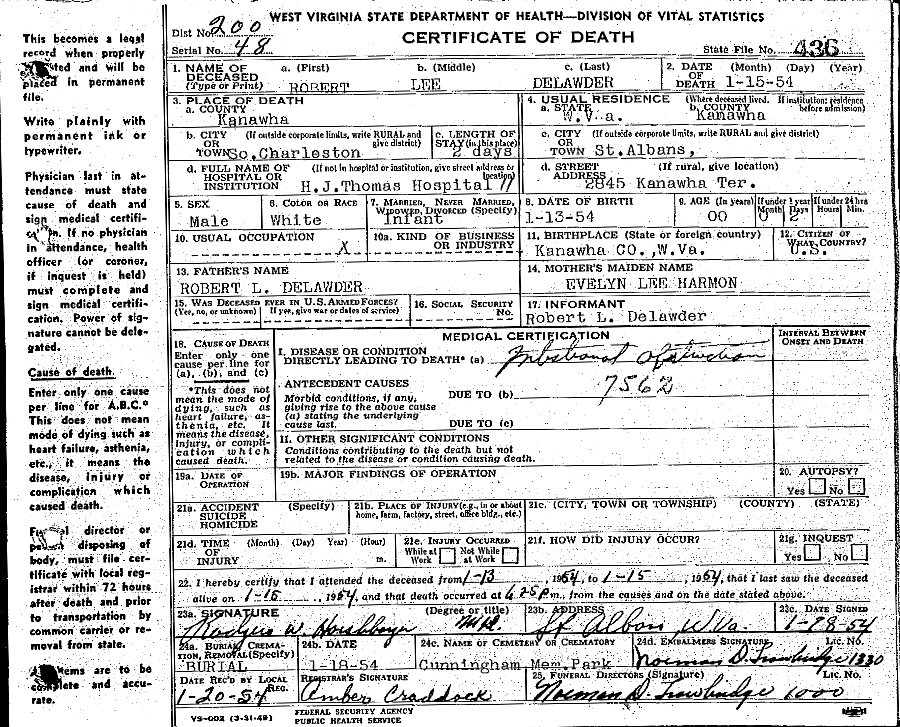 WEST VIRGINIA STATE DEPARTMENT OF HEALTH—DIVISION OF VITAL STATISTICS
Dist No. 200
CERTIFICATE OF DEATH
Serial No. 48
State File No. 436
This becomes a legal
record when properly
and will be
placed in permanent
file.
Write plainly with
permanent ink or
typewriter.
Physician last in at-
tendance must state
cause of death and
sign medical certifi-
If no physician
in attendance, health
officer (or coroner,
if inquest is held)
must complete and
sign medical certifi-
cation. Power of sig-
nature cannot be dele-
gated.
Cause of death.
Enter only one cause
per line for A.B.C.*
This does not mean
mode of dying such as
heart failure, asthenia,
etc., it means the
disease, injury or
complication which
caused death.
director or
disposing of
body, must file cer-
tificate with local reg-
istrar within 72 hours
after death and prior
to transportation by
common carrier or re-
moval from state.
items are to be
complete and accu-
rate.
1. NAME OF DECEASED (Type or Print)
a. (First) ROBERT
b. (Middle) LEE
c. (Last) DELAWDER
2. DATE OF DEATH (Month) (Day) (Year) 1-15-54
3. PLACE OF DEATH
a. COUNTY Kanawha
4. USUAL RESIDENCE (Where deceased lived. If institution: residence before admission)
a. STATE W.Va.
b. COUNTY Kanawha
b. CITY OR TOWN (If outside corporate limits, write RURAL and give district) So.Charleston
c. LENGTH OF STAY (in this place) 2 days
c. CITY OR TOWN (If outside corporate limits, write RURAL and give district) St.Albans,
d. FULL NAME OF HOSPITAL OR INSTITUTION (If not in hospital or institution, give street address or location) H.J.Thomas Hospital 11
d. STREET ADDRESS (If rural, give location) 2845 Kanawha Ter.
5. SEX Male
6. COLOR OR RACE White
7. MARRIED, NEVER MARRIED, WIDOWED, DIVORCED (Specify) Infant
8. DATE OF BIRTH 1-13-54
9. AGE (In years) 00
If under 1 year Months 0 Days 2
If under 24 hrs Hours Min.
10. USUAL OCCUPATION X
10a. KIND OF BUSINESS OR INDUSTRY
11. BIRTHPLACE (State or foreign country) Kanawha CO.,W.Va.
12. CITIZEN OF WHAT COUNTRY? U.S.
13. FATHER'S NAME
ROBERT L. DELAWDER
14. MOTHER'S MAIDEN NAME
EVELYN LEE HARMON
15. WAS DECEASED EVER IN U.S. ARMED FORCES?
(Yes, no, or unknown) (If yes, give war or dates of service)
16. SOCIAL SECURITY No.
17. INFORMANT
Robert L. Delawder
18. CAUSE OF DEATH
Enter only one
cause per line for
(a), (b), and (c)
*This does not
mean the mode of
dying, such as
heart failure, as-
thenia, etc. It
means the disease,
injury, or compli-
cation which
caused death.
MEDICAL CERTIFICATION
INTERVAL BETWEEN ONSET AND DEATH
I. DISEASE OR CONDITION
DIRECTLY LEADING TO DEATH* (a) Intestional obstruction
ANTECEDENT CAUSES
7562
Morbid conditions, if any,
giving rise to the above cause
(a) stating the underlying
cause last.
DUE TO (b)
DUE TO (c)
II. OTHER SIGNIFICANT CONDITIONS
Conditions contributing to the death but not
related to the disease or condition causing death.
19a. DATE OF OPERATION
19b. MAJOR FINDINGS OF OPERATION
20. AUTOPSY?
Yes No
21a. ACCIDENT SUICIDE HOMICIDE (Specify)
21b. PLACE OF INJURY (e.g., in or about home, farm, factory, street, office bldg., etc.)
21c. (CITY, TOWN OR TOWNSHIP) (COUNTY) (STATE)
21d. TIME OF INJURY (Month) (Day) (Year) (Hour) m.
21e. INJURY OCCURRED
While at Work Not While at Work
21f. HOW DID INJURY OCCUR?
21g. INQUEST
Yes No
22. I hereby certify that I attended the deceased from 1-13, 1954, to 1-15, 1954, that I last saw the deceased
alive on 1-15, 1954, and that death occurred at 6:25 P.m., from the causes and on the date stated above.
23a. SIGNATURE (Degree or title) M.D.
23b. ADDRESS St Albans W.Va.
23c. DATE SIGNED 1-18-54
24a. BURIAL, CREMATION, REMOVAL (Specify) BURIAL
24b. DATE 1-18-54
24c. NAME OF CEMETERY OR CREMATORY Cunningham Mem.Park
24d. EMBALMERS SIGNATURE Lic. No. Norman D. Trowbridge 1330
DATE REC'D BY LOCAL REG. 1-20-54
REGISTRAR'S SIGNATURE Amber Craddock
25. FUNERAL DIRECTORS (Signature) Lic. No. Norman D. Trowbridge 1000
VS-002 (3-31-49)
FEDERAL SECURITY AGENCY
PUBLIC HEALTH SERVICE